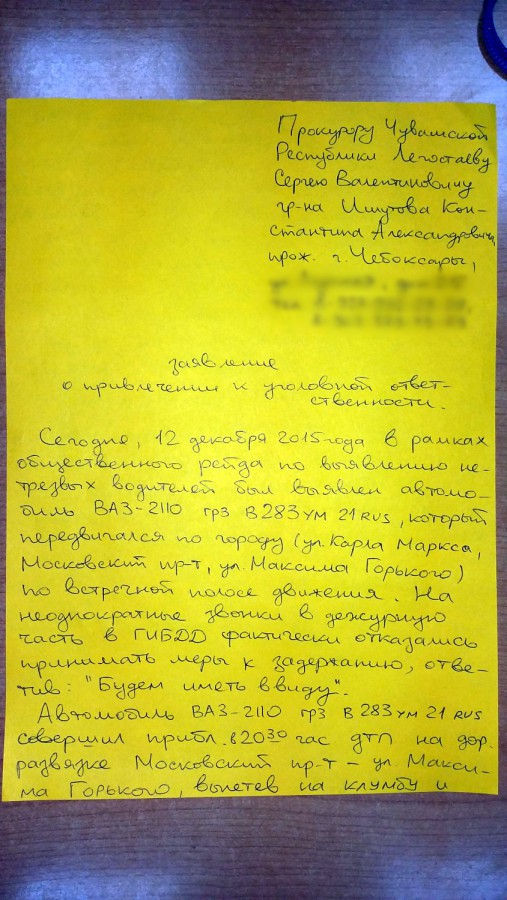 Прокурору Чувашской
Республики Легостаеву
Сергею Валентиновичу
гр-на Ишутова Кон-
стантина Александровича,
прож. г. Чебоксары,
заявление
о привлечении к уголовной ответ-
ственности.
Сегодня, 12 декабря 2015 года в рамках
общественного рейда по выявлению не-
трезвых водителей был выявлен автомо-
биль ВАЗ-2110 грз В283УМ 21 RUS, который
передвигался по городу (ул. Карла Маркса,
Московский пр-т, ул. Максима Горького)
по встречной полосе движения. На
неоднократные звонки в дежурную
часть в ГИБДД фактически отказались
принимать меры к задержанию, отве-
тив: "Будем иметь ввиду".
Автомобиль ВАЗ-2110 грз В 283 УМ 21 RUS
совершил прибл. в 20 30 час ДТП на дор.
развязке Московский пр-т - ул. Макси-
ма Горького, вылетев на клумбу и